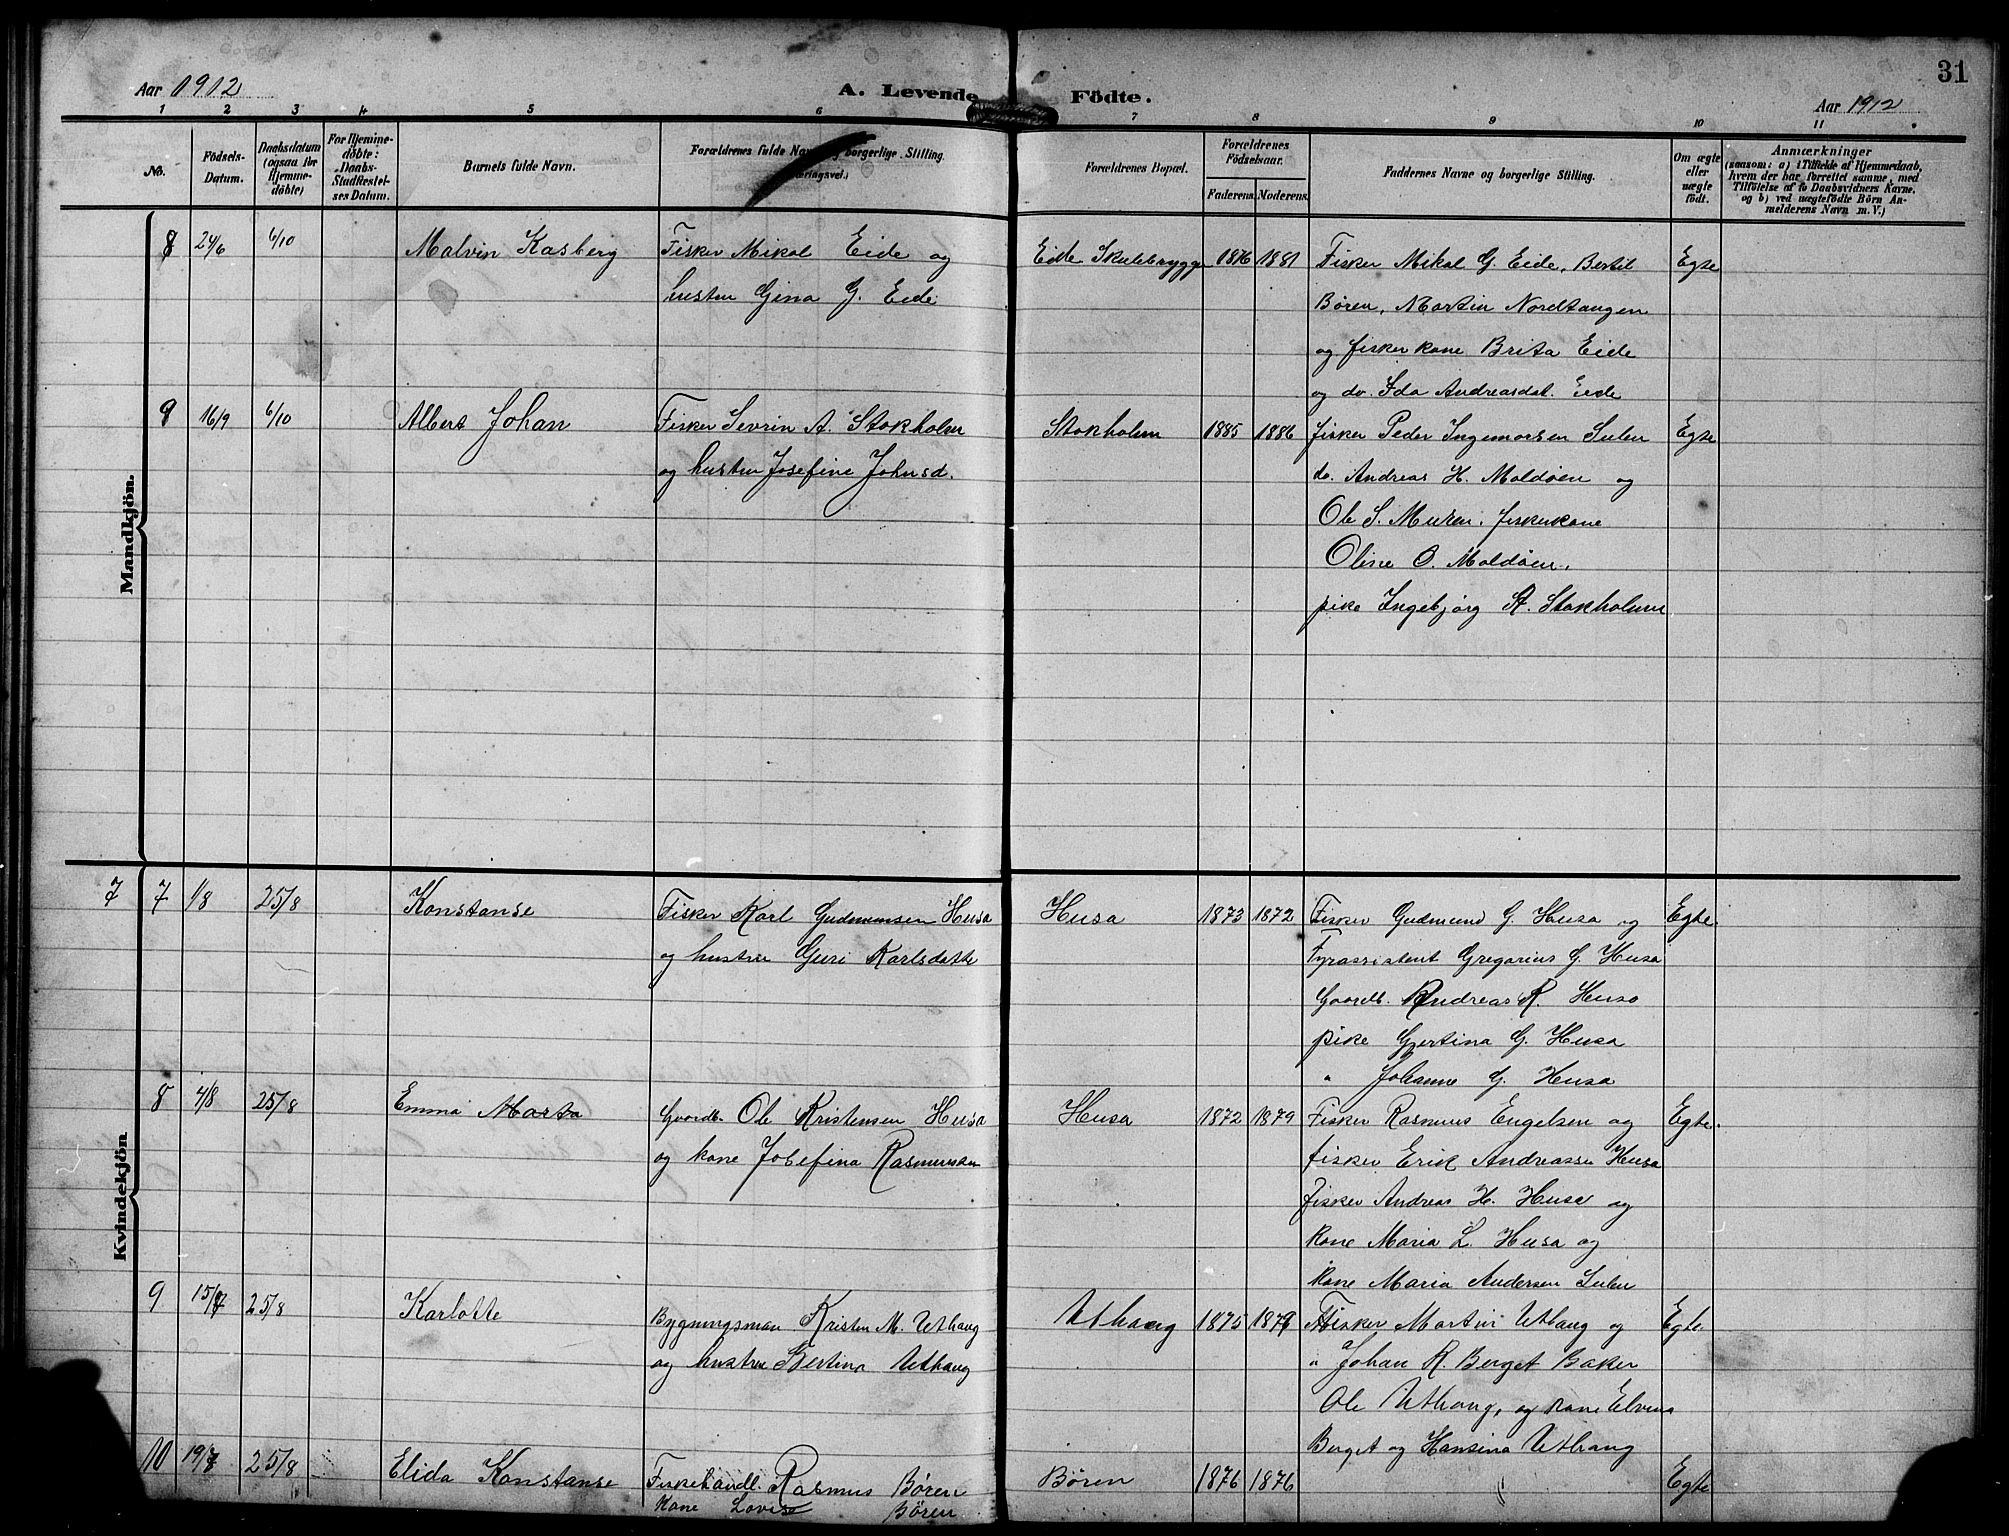 31
Aar 1912 A. Levende Födte. Aar 1912
1 2 3 4 5 6 7 8 9 10 11
No.
Födsels-
Datum.
Daabsdatum
(ogsaa for
Hjemme-
döbte)
For Hjemme-
döbte:
Daabs-
Stadfæstel-
ses Datum.
Barnets fulde Navn.
Forældrenes fulde Navn og borgerlige Stilling
Forældrenes Bopæl.
Forældrenes
Födselsaar.
Faderens. Moderens.
Faddernes Navne og borgerlige Stilling.
Om ægte
eller
uægte
födt.
Anmærkninger
(saasom: a) i Tilfælde af Hjemmedaab,
hvem der har forrettet samme, med
Tilföielse af to Daabsvidners Navne,
og b) ved uægtefödte Börn An-
melderens Navn m. V.)
Mandkjön.
8 24/6 6/10 Malvin Kasberg
Fisker Mikal Eide og
hustru Gina G. Eide.
Eide Skulebrygge 1876 1881
Fisker Mikal G. Eide, Bertil
Børen, Martin Nordtangen
og fiskerkone Brita Eide
og do. Ida Andreasdat. Eide
Egte
9 16/9 6/10 Albert Johan
Fisker Sevrin A. Stokholm
og hustru Josefine Johnsd.
Stokholm 1885 1886
fisker Peder Ingemorsen Sulen
do. Andreas H. Moldöen og
Ole S. Muren. fiskerkone
Oline O. Moldöen.
pike Ingebjørg A. Stokholm
Egte
Kvindekjön
7 7 1/8 25/8 Konstanse
Fisker Karl Gudmunsen Husa
og hustru Guri Karlsdatte
Husa 1873 1872
Fisker Gudmund G. Husa og
Fyrassistent Gregorius G. Husa
Gaardb. Andreas R. Husa
pike Gjertina G. Husa
" Johanne G. Husa
Egte.
8 4/8 25/8 Emma Marta
Gaardb. Ole Kristensen Husa
og kone Josefina Rasmussen
Husa 1872 1879
Fisker Rasmus Engelsen og
fisker Erik Andreasse Husa
Fisker Andreas H. Husa og
kone Maria L. Husa og
kone Maria Andersen Sulen
Egte.
9 15/7 25/8 Karlotte
Bygningsman Kristen M. Uthaug
og hustru Bertina Uthaug
Uthaug 1875 1879
Fisker Martin Uthaug og
" Johan R. Berget Baker
Ole Uthaug, og kone Elvina
Berget og Hansina Uthaug
Egte.
10 19/7 25/8 Elida Konstanse
Fiskehandl. Rasmus Børen
Kone Lovise Børen
Børen 1876 1876
Egte